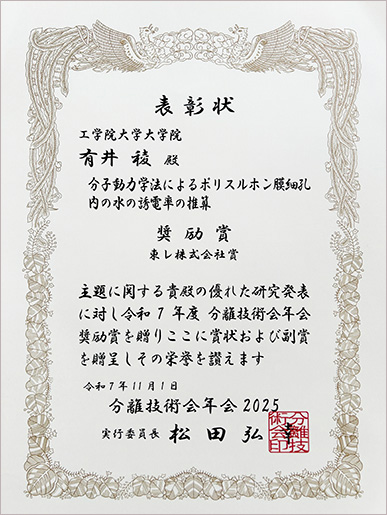 表彰状
工学院大学大学院
有井 稜 殿
分子動力学法によるポリスルホン膜細孔
内の水の誘電率の推算
奨励賞
東レ株式会社賞
主題に関する貴殿の優れた研究発表
に対し令和7年度 分離技術会年会
奨励賞を贈りここに賞状および副賞
を贈呈しその栄誉を讃えます
令和7年11月1日
分離技術会年会2025
実行委員長 松田弘幸
分離技
術会印